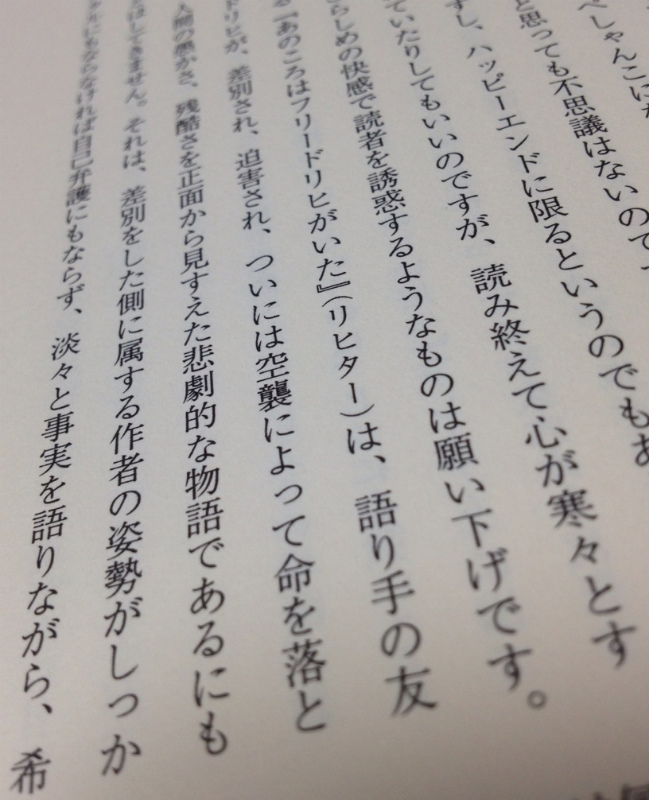 ぺしゃんこに
と思っても不思議はないので
すし、ハッピーエンドに限るというのでもあ
ていたりしてもいいのですが、読み終えて心が寒々とす
らしめの快感で読者を誘惑するようなものは願い下げです。
る『あのころはフリードリヒがいた』（リヒター）は、語り手の友
ドリヒが、差別され、迫害され、ついには空襲によって命を落と
人間の愚かさ、残酷さを正面から見すえた悲劇的な物語であるにも
はしてきません。それは、差別をした側に属する作者の姿勢がしっか
にもならなければ自己弁護にもならず、淡々と事実を語りながら、希